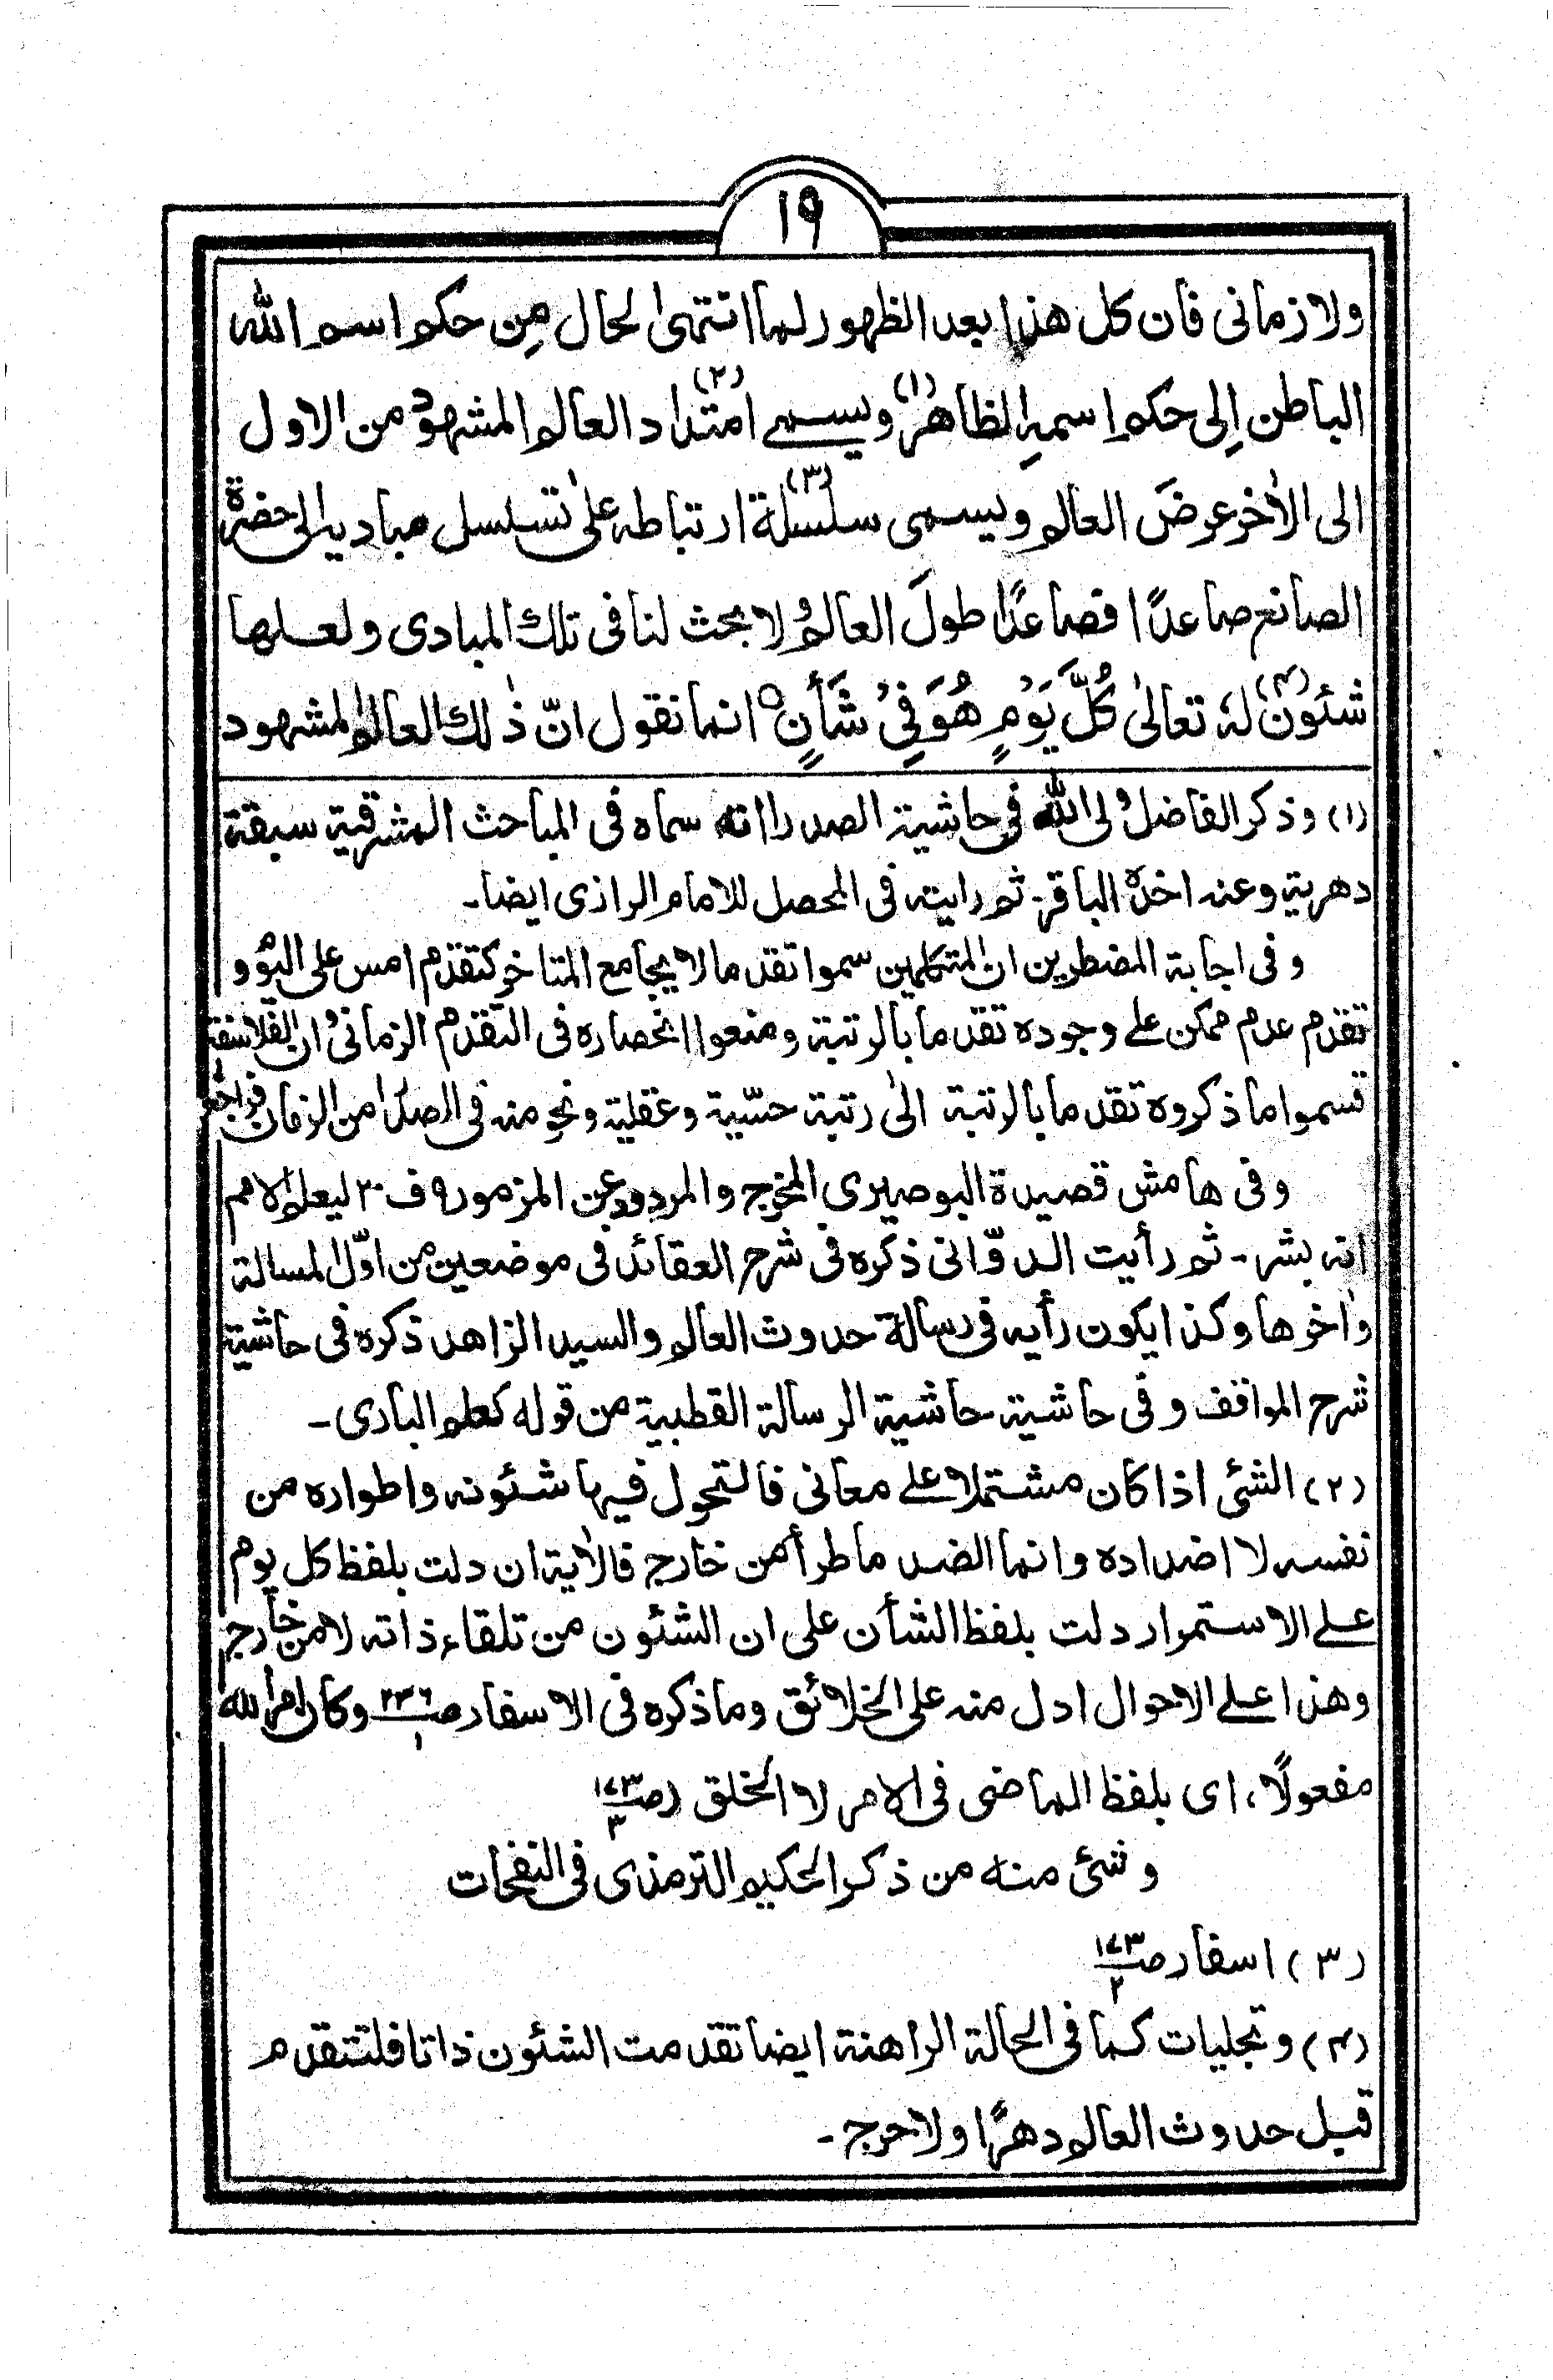 ١٩
ولا زمانى فان كل هذا بعد الظهور لما انتهى لحال مِن حكم اسم الله
الباطن اِلى حكم اسمهِ الظاهر(١) ويسمے امتداد(٢) العالم المشهود من الاول
الى الآخر عرضَ العالم ويسمى سلسلة(٣) ارتباطه على تسلسل مباديه الى حضرة
الصانع صاعدًا فصاعدًا طولَ العالم ولا بحث لنا فى تلك المبادى ولعلها
شئون(٤) لهٗ تعالىٰ كُلَّ يَوْمٍ هُوَ فِىْ شَأْنٍ ٥ انما نقول انّ ذٰلك العالم المشهود
(١) وذكر الفاضل ولى الله فى حاشية الصدرا انه سماه فى المباحث المشرقية سبقة
دهرية وعنه اخذه الباقر۔ ثم رايته فى المحصل للامام الرازى ايضا۔
وفى اجابة المضطرين ان المتكلمين سموا تقدم ما لا يجامع المتاخر كتقدم امس على اليوم و
تقدم عدم ممكن علے وجوده تقدما بالرتبة ومنعوا انحصاره فى التقدم الزمانى وان الفلاسفة
قسموا ما ذكروه تقدما بالرتبة الىٰ رتبة حسّية وعقلية ونحو منه فى الصدرا من الزمان فراجعه
وفى هامش قصيدة البوصيرى المخرج والمردود عن المزمور ٩ ف ٢٠ ليعلم الامم
انه بشر۔ ثم رأيت الدوّانى ذكره فى شرح العقائد فى موضعين من اوّل المسالة
وآخرها وكذا يكون رأيه فى رسالة حدوث العالم والسيد الزاهد ذكره فى حاشية
شرح المواقف وفى حاشية حاشية الرسالة القطبية من قوله كعلم البارى۔
(٢) الشئ اذا كان مشتملا علے معانى فالتحول فيها شئونه واطواره من
نفسه لا اضداده وانما الضد ما طرأ من خارج فالآية ان دلت بلفظ كل يوم
علے الاستمرار دلت بلفظ الشأن على ان الشئون من تلقاء ذاته لا من خارج
وهذا علے الاحوال ادل منه على الخلائق وما ذكره فى الاسفار صـ ٢٣٦/١ وكان امر الله
مفعولًا، اى بلفظ الماضى فى الامر لا الخلق (صـ ١٧٣/٣
وشئ منه من ذكر الحكيم الترمذى فى النفحات
(٣) اسفار صـ ١٧٣/٢
(٤) وتجليات كما فى الحالة الراهنة ايضا تقدمت الشئون ذاتا فلتتقدم
قبل حدوث العالم دهرًا ولا حرج۔